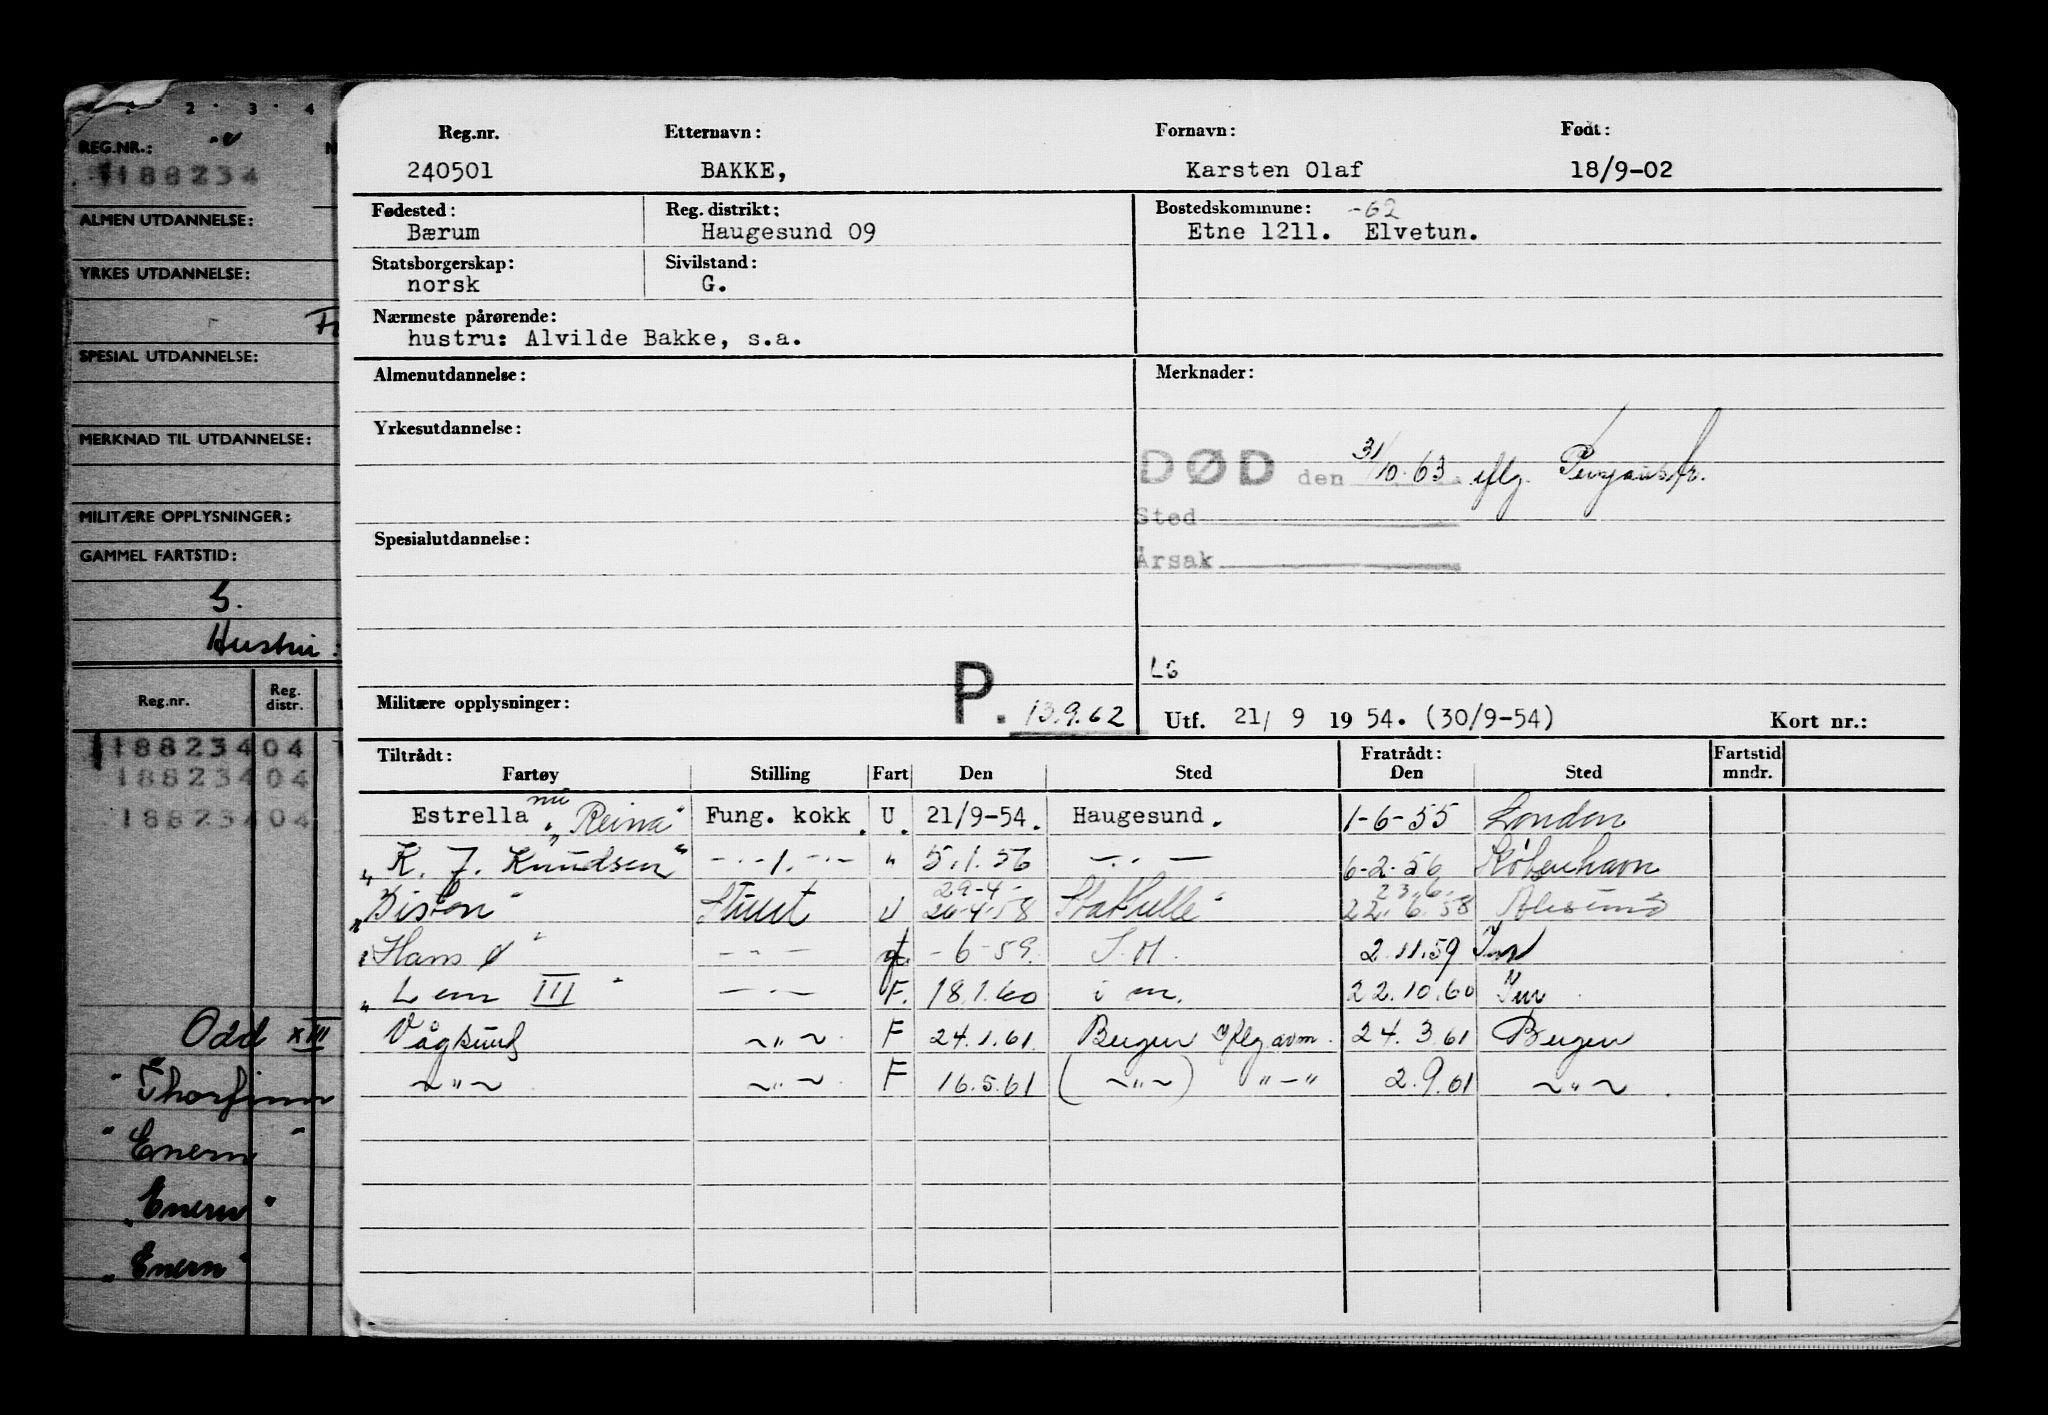 1 2 3 4
REG.NR.:
188234
ALMEN UTDANNELSE:
YRKES UTDANNELSE:
SPESIAL UTDANNELSE:
MERKNAD TIL UTDANNELSE:
MILITÆRE OPPLYSNINGER:
GAMMEL FARTSTID:
G.
Hustru:
Reg.nr. Reg. distr.
188234 04
188234 04
188234 04
Odd XIII
"Thorfinn
"Enern"
"Enern"
"Enern"
Reg.nr. Etternavn: Fornavn: Født:
240501 BAKKE, Karsten Olaf 18/9-02
Fødested: Reg. distrikt: Bostedskommune: -62
Bærum Haugesund 09 Etne 1211. Elvetun.
Statsborgerskap: Sivilstand:
norsk G.
Nærmeste pårørende:
hustru: Alvilde Bakke, s.a.
Almenutdannelse: Merknader:
Yrkesutdannelse:
DØD den 31/10.63 iflg.
Sted
Spesialutdannelse:
Årsak
LG
Militære opplysninger: P. 13.9.62 Utf. 21/ 9 19 54. (30/9-54) Kort nr.:
Tiltrådt: Fratrådt: Fartstid
Fartøy Stilling Fart Den Sted Den Sted mndr.
Estrella nu "Reina" Fung. kokk. U. 21/9-54. Haugesund. 1-6-55 London
"K. J. Knudsen" -.-1.-.- " 5.1.56 -..- 6-2-56 København
"Bisten" Stuert U 29-4- 26-4-58 Stathelle 23.6. 22.6.58 Ålesund
"Hans Ø" - - - - 6-59. I.M. 2.11.59 Inr
"Lem III" -..- F. 18.1.60 i m. 22.10.60 Inr
Vågsund ~"~ F 24.1.61. Bergen iflg avm. 24.3.61 Bergen
~"~ ~"~ F 16.5.61 (~"~) "-" 2.9.61 ~"~